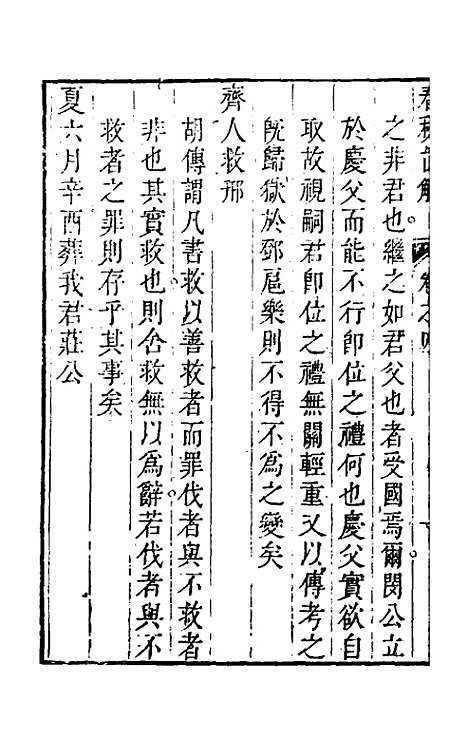 春秋說解 卷之四
之非君也繼之如君父也者受國焉爾閔公立
於慶父而能不行卽位之禮何也慶父實欲自
取故視嗣君卽位之禮無關輕重又以傳考之
旣歸獄於鄧扈樂則不得不爲之變矣
齊人救邢
胡傳謂凡書救以善救者而罪伐者與不救者
非也其實救也則舍救無以爲辭若伐者與不
救者之罪則存乎其事矣
夏六月辛酉葬我君莊公